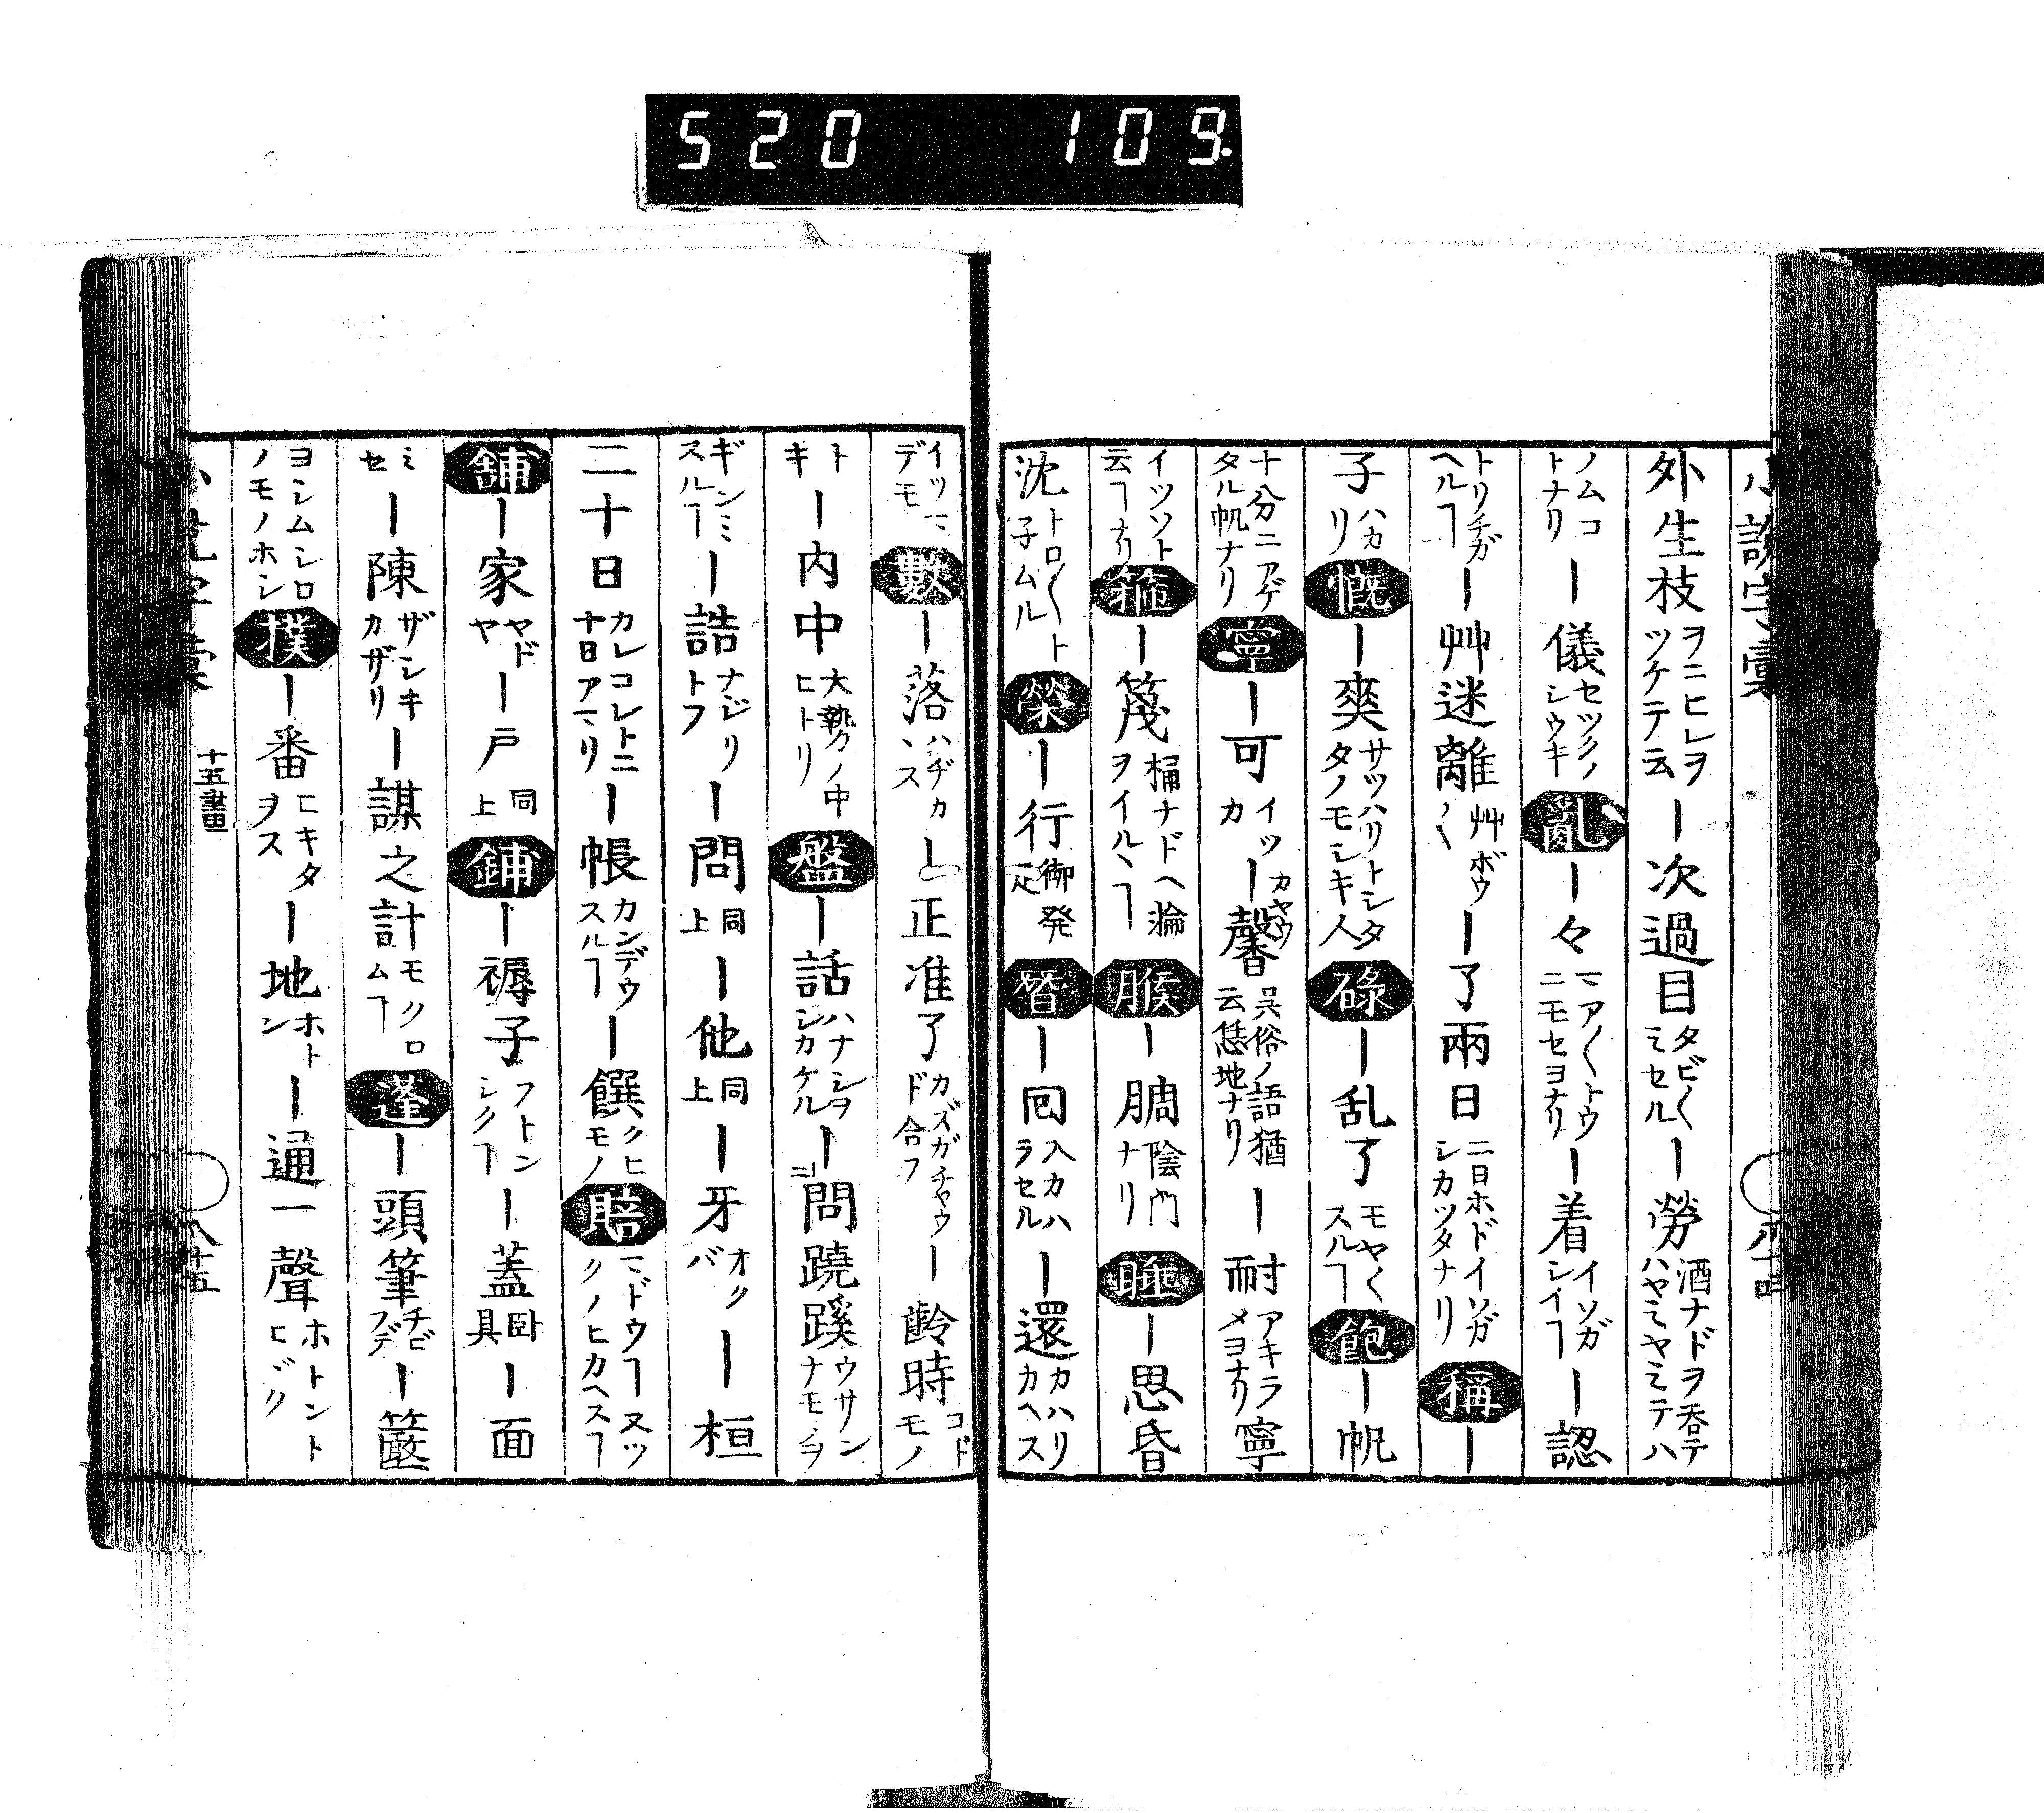 520 109.
小説字彙
外生枝ヲニヒレヲツケテ云ー次過目タビ〱ミセルー勞酒ナドヲ呑テハヤミヤミテハ
ノムコトナリー儀セツクノシウキ亂ー々マア〱トウニモセヨナリー着イソガシイヿー認
トリチガヘルヿー艸迷離艸ボウ〱ー了兩日二日ホドイソガシカツタナリ稱ー
子ハカリ慨ー爽サツハリトシタタノモシキ人碌ー乱了モヤ〱スルヿ飽ー帆
十八分ニアゲタル帆ナリ寧ー可イツカー馨カヤウ呉俗ノ語猶云恁地ナリー耐アキラメヨナリ寧
イツソト云ヿナリ箍ー篾桶ナドヘ瀹ヲイルヽヿ腇ー腡陰門ナリ睡ー思昏
沈トロ〱ト子ムル榮ー行御発足替ー囘入カハラセルー還カハリカヘス
イツマデモ數ー落ハヂカヽスー正准了カズガチヤウド合フー齡時コドモノ
トキー内中大勢ノ中ヒトリ盤ー話ハナシヲシカケルー問蹺蹊ウサンナモノヲ
ギンミスルヿー誥ナジリトフー問同上ー他同上ー牙オクバー桓
二十日カレコレトニ十日アマリー帳カンデウスルヿー饌クヒモノ賠マドウヿ又ツクノヒカヘスヿ
舖ー家ヤドヤー戸同上鋪ー褥子フトンシクヿー蓋臥具ー面
ミセー陳ザシキカザリー謀之計モクロムヿ蓬ー頭筆チビフデー䉷
ヨシムシロノモノホシ撲ー番ヒキタヲスー地ホトンー通一聲ホトントヒヾク
十五畫